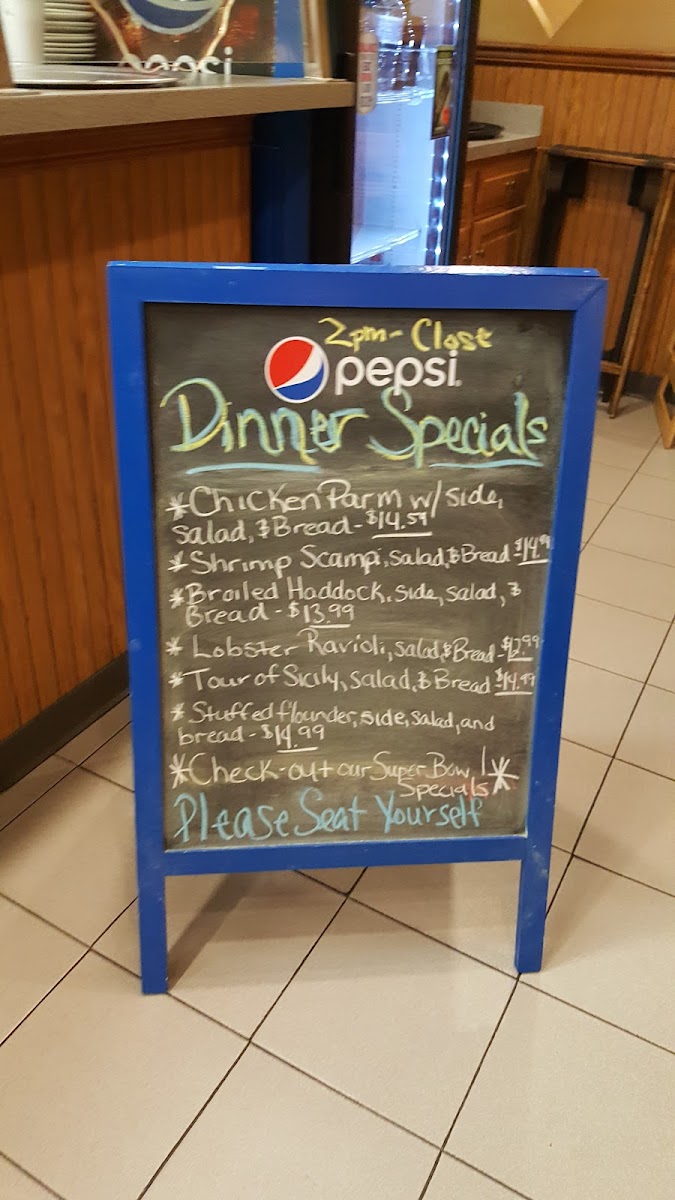 pepsi
2pm - Close
pepsi
Dinner Specials
*Chicken Parm w/ side,
Salad, & Bread - $14.59
*Shrimp Scampi, Salad, & Bread $14.9
*Broiled Haddock, side, salad, &
Bread - $13.99
* Lobster Ravioli, salad, & Bread - $12.99
*Tour of Sicily, Salad, & Bread $14.99
* Stuffed flounder, side, salad, and
bread - $14.99
*Check-out our Super Bowl *
Specials
Please Seat Yourself